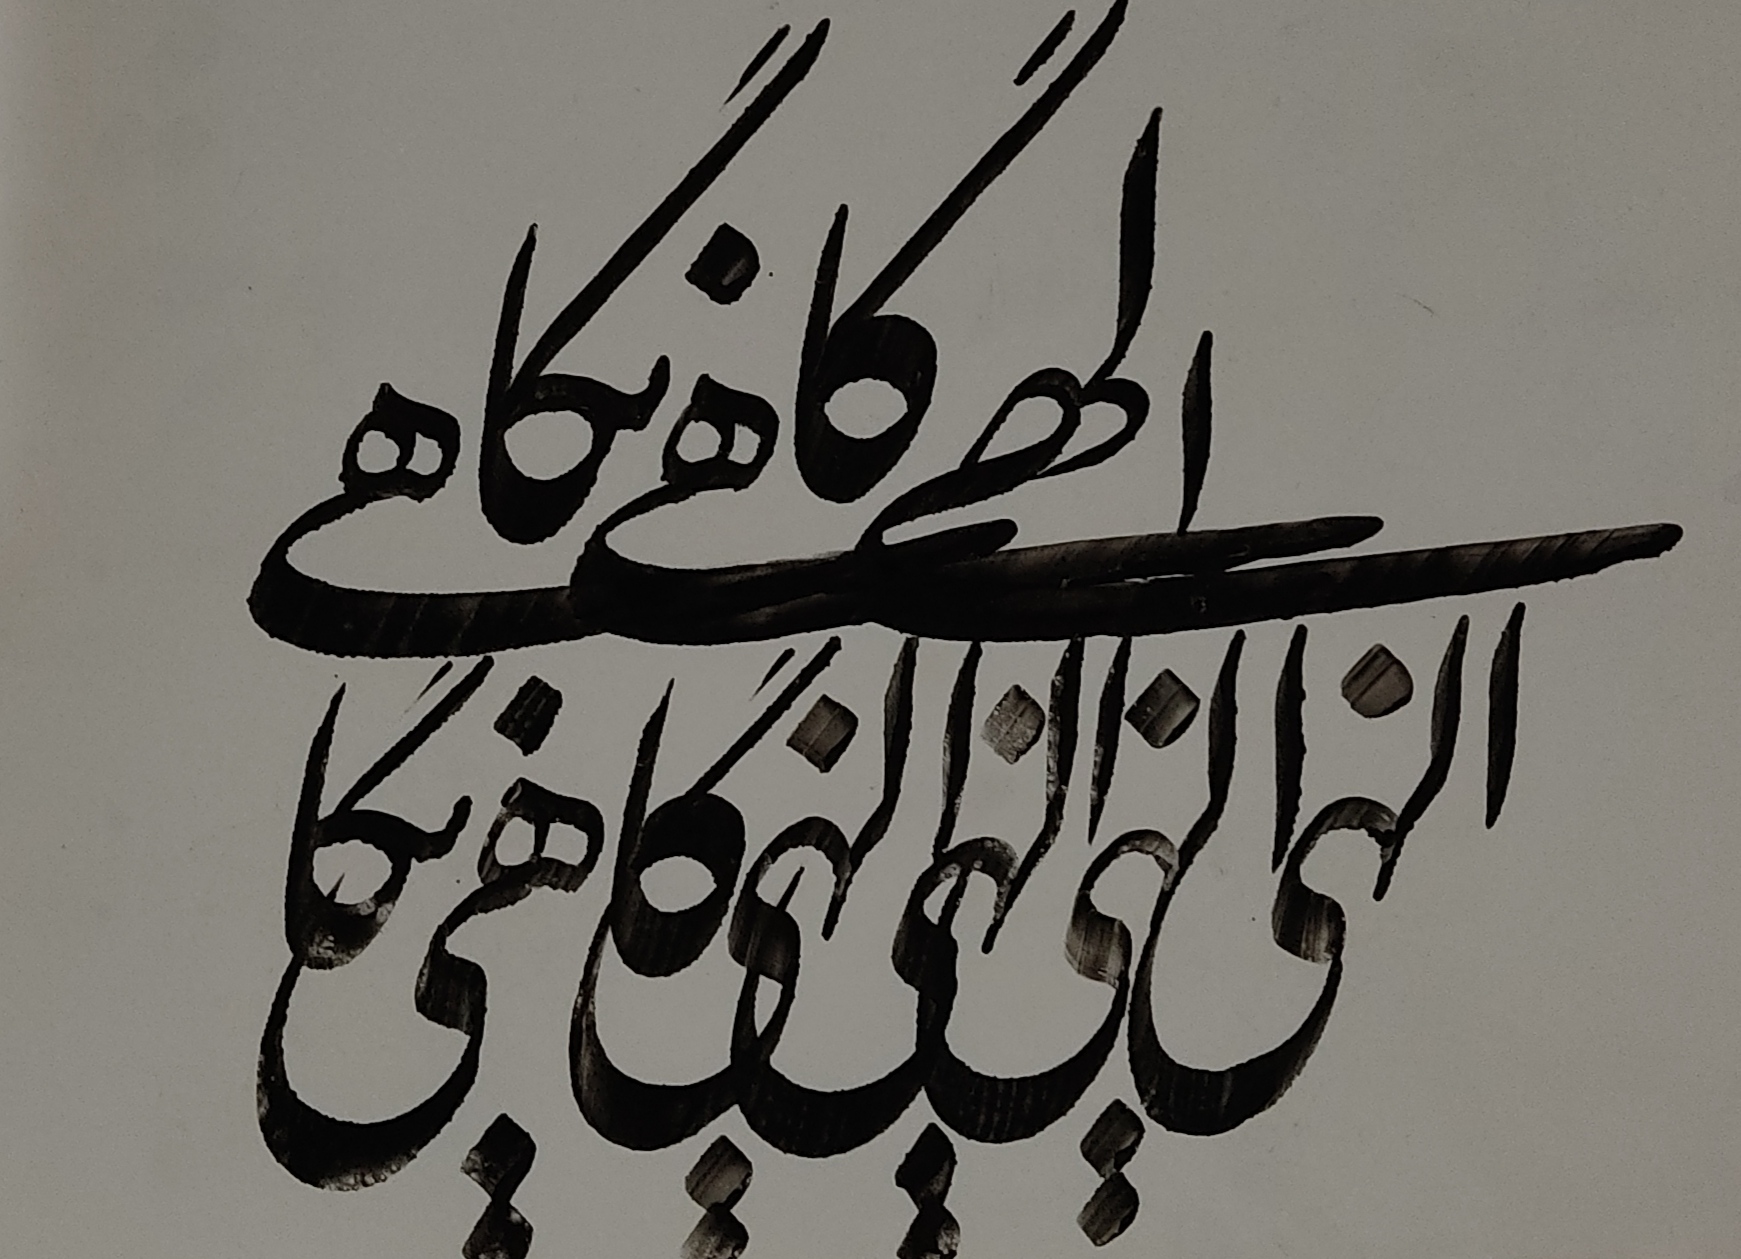 الهی گاهی نگاهی
الهی الهی الهی الهی گاهی نگا